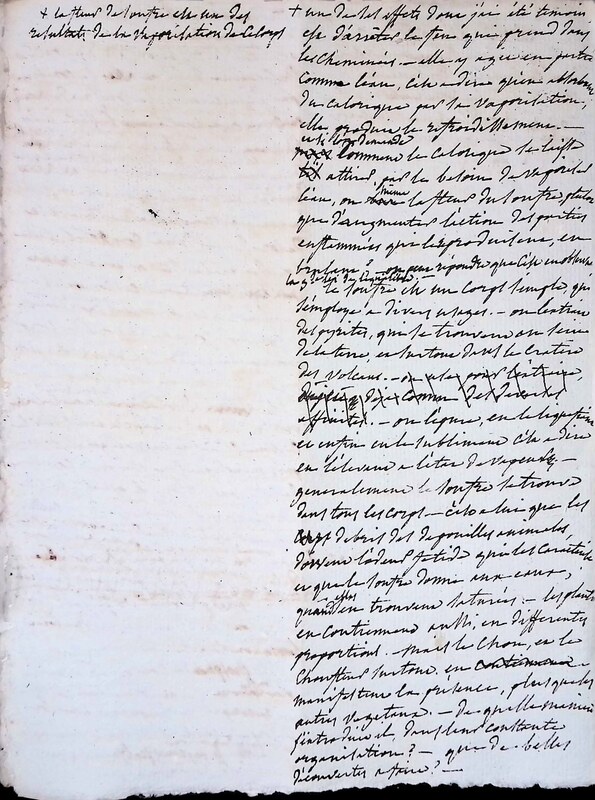 + la fleur de soufre est un des
resultats de la vaporisation de ce corps
+ un de ses effets dont j'ai été temoin
est d'arreter le feu qui prend dans
les cheminées. – elle y agit en partie
comme l'eau, c'est a dire qu'en absorbant
du calorique par sa vaporisation,
elle produit le refroidissement. –
comment le calorique se laisse
attirer par le besoin de vaporiser
l'eau, ou même la fleur du soufre plutot
que d'augmenter l'action des parties
enflammées qui le produisent, en
brulant? – on peut répondre que c'est en obéissant
le soufre est un corps simple qui
s'employe a divers usages. – on l'extrait
des pyrites, qui se trouvent au sein
de la terre, et surtout dans le cratere
des volcans. –
affinités. – on l'épure, en le liquefiant
et enfin en le sublimant c'est a dire
en l'élevant a l'état de vapeurs –
generalement le soufre se trouve
dans tous les corps – c'est a lui que les
debris des depouilles animales,
doivent l'odeur fetide qui les caractérise
et que le soufre donne aux eaux,
quand elles en trouvent saturées. – les plantes
en contiennent aussi, en differentes
proportions. mais le chou, et le
choufleur surtout, en
manifestent la présence, plus que les
autres vegetaux. – de quelle maniere
s'introduit il dans leur constante
organisation? – que de belles
découvertes a faire? –